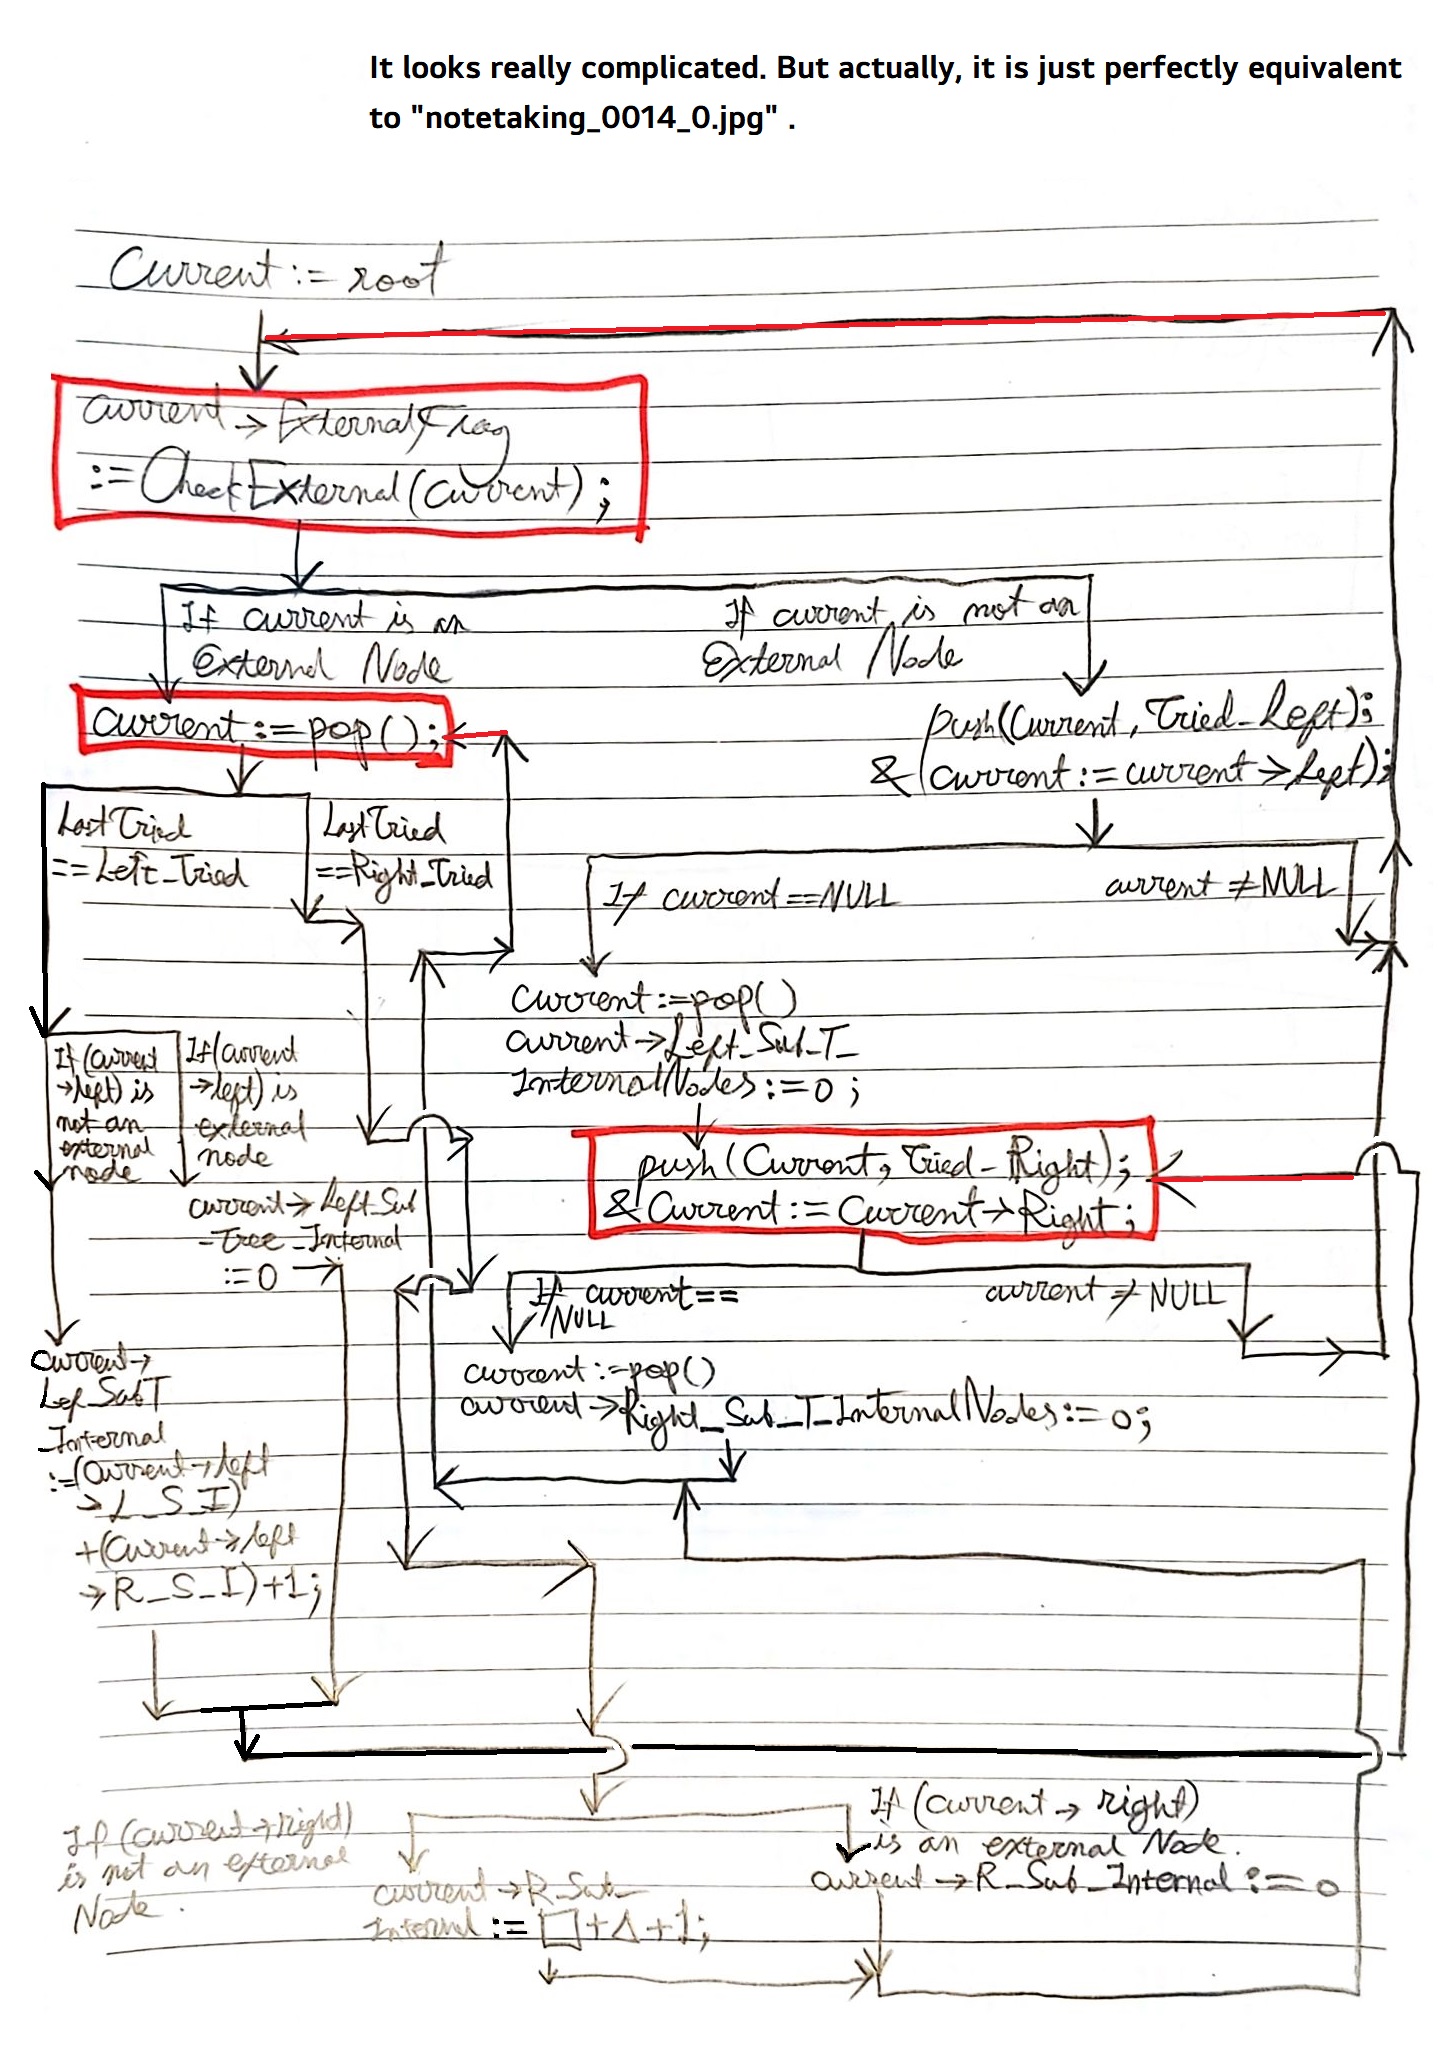 It looks really complicated. But actually, it is just perfectly equivalent
to "notetaking_0014_0.jpg" .
Current := root
current → ExternalFlag
:= CheckExternal(current) ;
If current is an
External Node
If current is not an
External Node
current := pop();
push(Current, Tried_Left);
& (current := current → Left);
LastTried
== Left_Tried
LastTried
== Right_Tried
If current == NULL
current ≠ NULL
current := pop()
current → Left_Sub_T_
InternalNodes := 0 ;
If (current
→ left) is
not an
external
node
If (current
→ left) is
external
node
push(Current, Tried_Right);
& Current := Current → Right ;
current → Left_Sub
_Tree_Internal
:= 0
If current ==
NULL
current ≠ NULL
current →
Lef_SubT
_Internal
:= (Current → left
→ L_S_I)
+ (Current → left
→ R_S_I) + 1 ;
current := pop()
current → Right_Sub_T_InternalNodes := 0 ;
If (current → right)
is not an external
Node .
If (current → right)
is an external Node.
current → R_Sub_Internal := 0
current → R_Sub_
Internal := □ + Δ + 1 ;